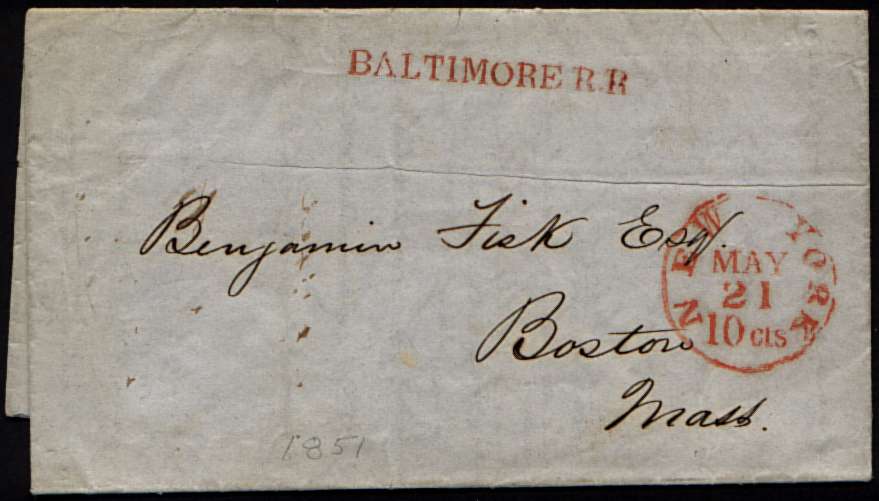 BALTIMORE R.R
Benjamin Fisk Esqr.
NEW YORK
MAY
21
10 cts
Boston
Mass.
1851